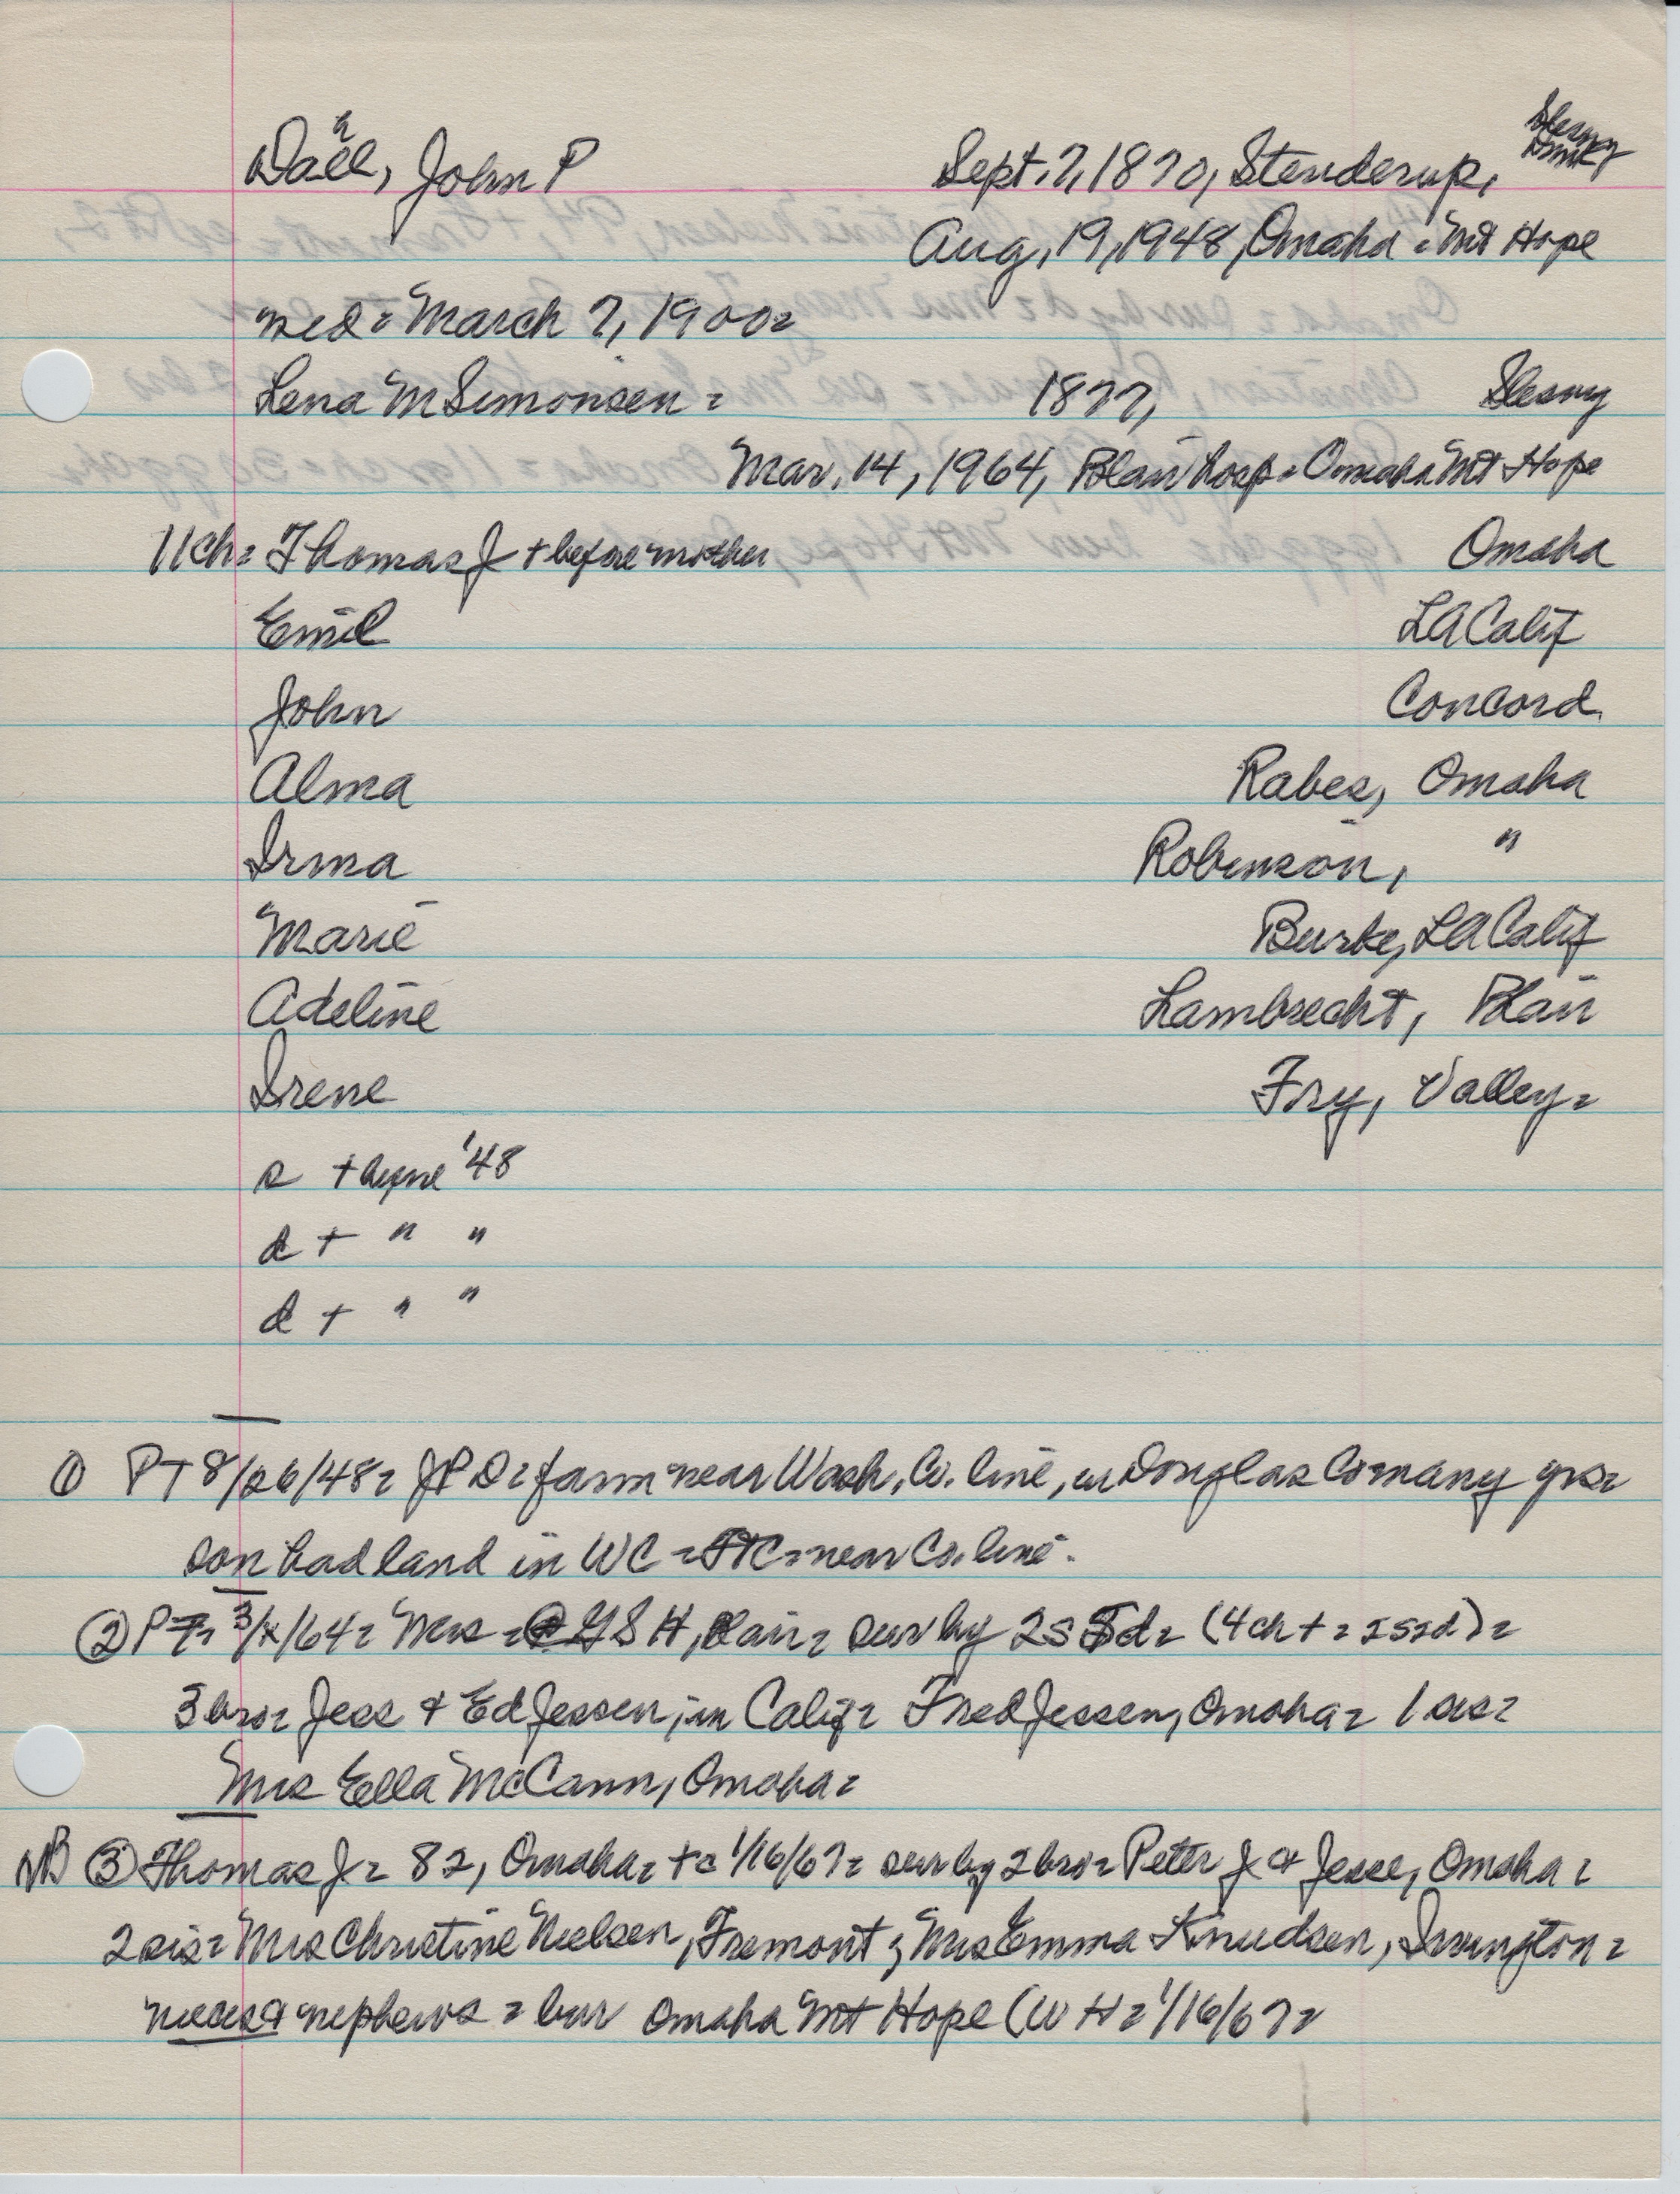 Daël, John P Sept. 7, 1870, Stenderup, Slesvig
Aug, 19, 1948, Omaha = Mt Hope
wed = March 7, 1900=
Lena M Simonsen = 1877, Slesvig
Mar. 14, 1964, Blair hosp = Omaha Mt Hope
11ch= Thomas J + before mother Omaha
Emil LA Calif
John Concord
Alma Rabes, Omaha
Irma Robinson, "
Marie Burke, LA Calif
Adeline Lambrecht, Blair
Irene Fry, Valley=
s + before '48
d + " "
d + " "
① PT 8/26/48= JPD= farm near Wash. Co. line, in Douglas Co many yrs=
son had land in WC = near Co. line.
② PT= 3/ /64= Mrs = GSH, Blair= sur by 2s 5d= (4ch += 2s2d)=
3 bro= Jess & Ed Jessen, in Calif= Fred Jessen, Omaha= 1 sis=
Mrs Ella McCann, Omaha=
NB ③ Thomas J= 82, Omaha= +c 1/16/67= sur by 2 bro= Peter J & Jesse, Omaha=
2 sis= Mrs Christine Nielsen, Fremont; Mrs Emma Knudsen, Irvington=
nieces & nephews = bur Omaha Mt Hope (WH= 1/16/67=